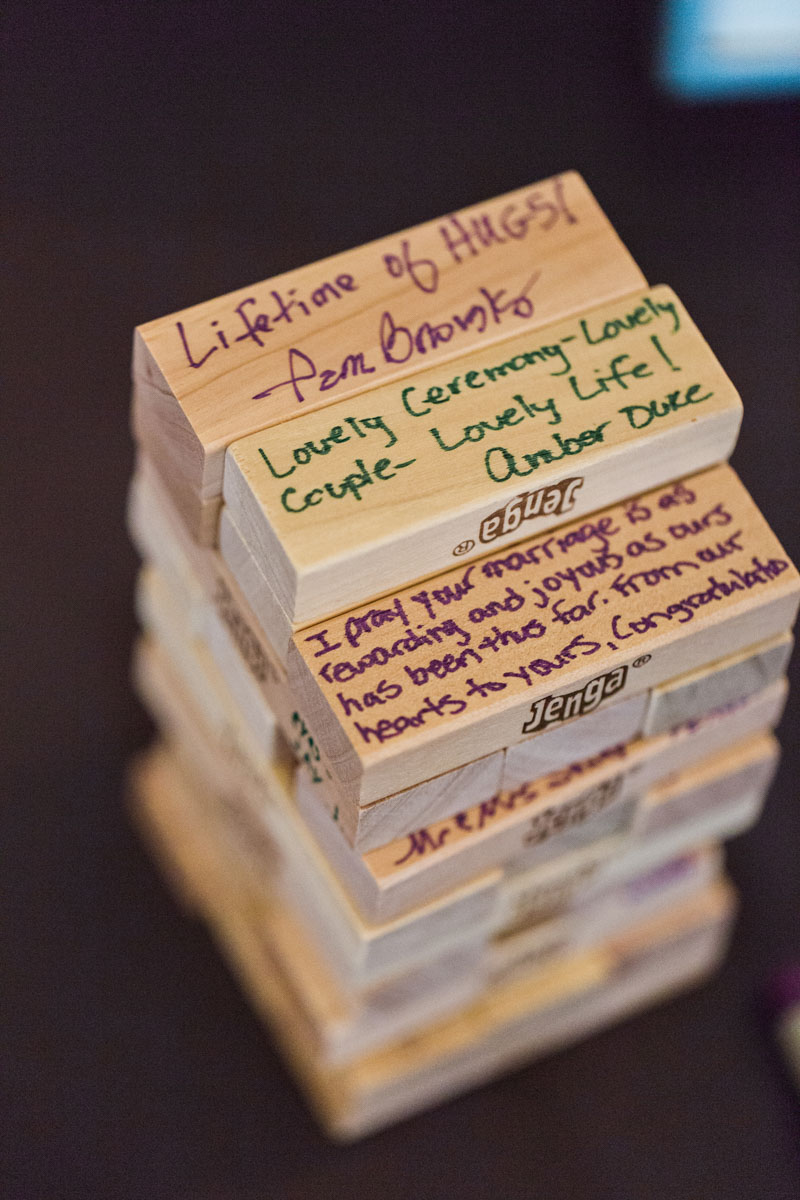 Lifetime of HUGS!
Lovely Ceremony-Lovely
Couple- Lovely Life!
Amber Duke
Jenga®
I pray your marriage is as
rewarding and joyous as ours
has been thus far. From our
hearts to yours, Congratulatio
Jenga®
Mr & Mrs